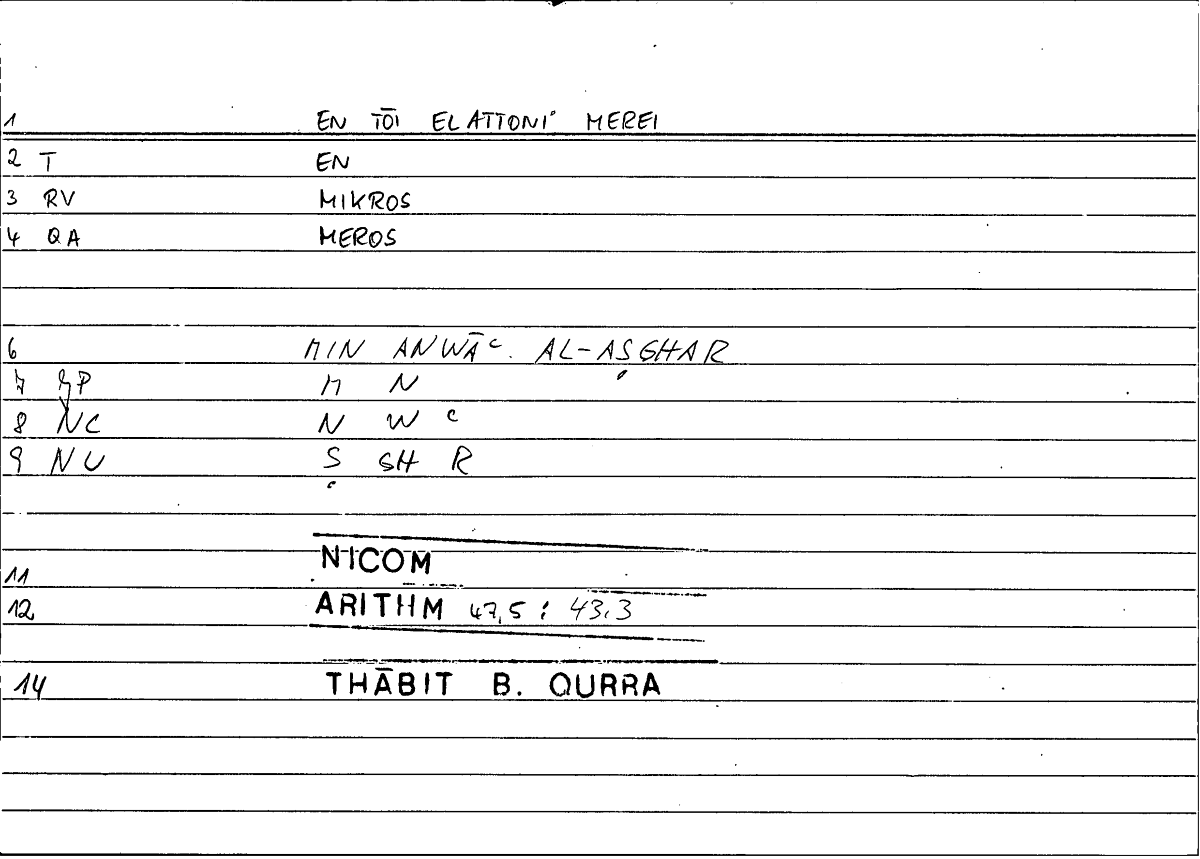 1 EN TŌI ELATTONI MEREI
2 T EN
3 RV MIKROS
4 QA MEROS
6 MIN ANWĀʿ AL-AṢGHAR
7 P M N
8 NC N W ʿ
9 NU Ṣ GH R
NICOM
11
12 ARITHM 47,5 : 43,3
14 THĀBIT B. QURRA